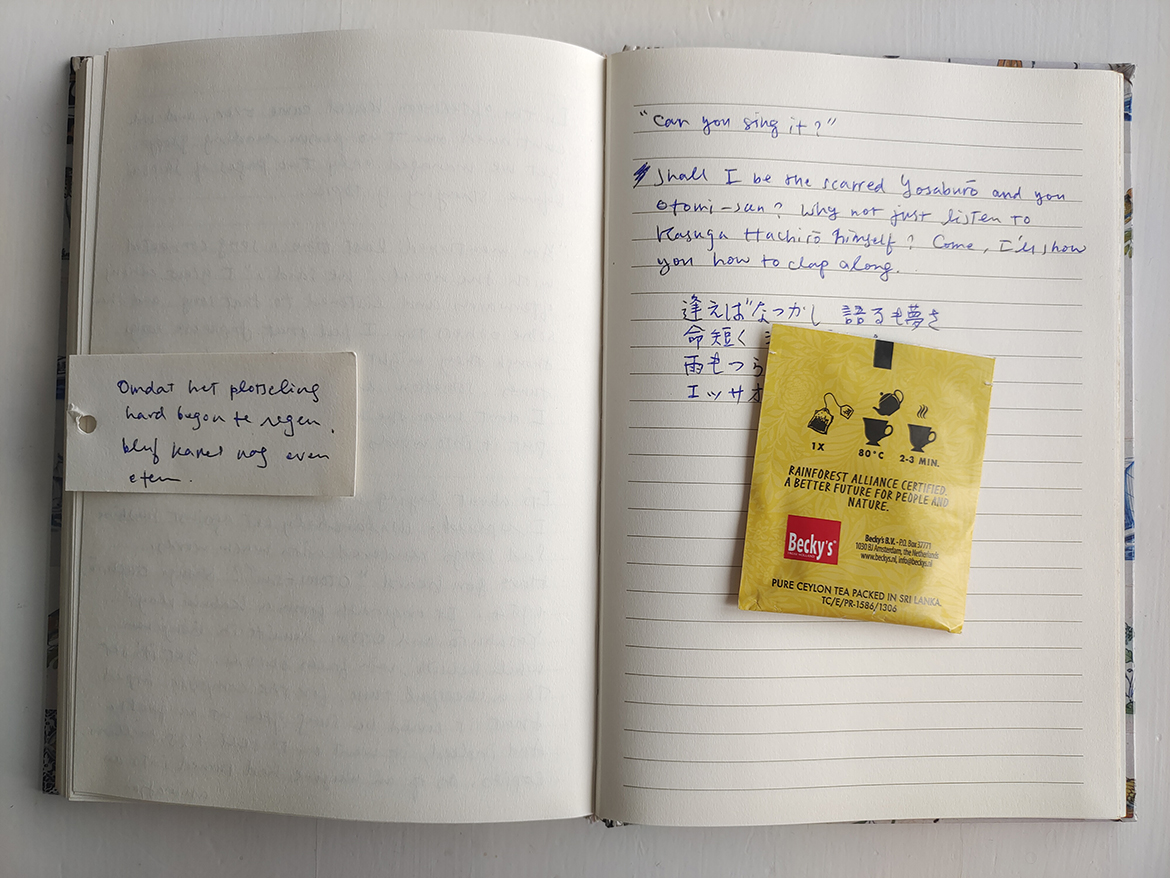 Omdat het plotseling
hard begon te regen,
bleef Karel nog even
eten.
"Can you sing it?"
Shall I be the scarred Yosaburō and you
Otomi-san? Why not just listen to
Kasuga Hachirō himself? Come, I'll show
you how to clap along.
逢えばなつかし 語るも夢さ
命短く
雨もつら
エッサオ
1X
80°C
2-3 MIN.
RAINFOREST ALLIANCE CERTIFIED.
A BETTER FUTURE FOR PEOPLE AND
NATURE.
Becky's
Becky's B.V. - P.O. Box 37771
1030 BJ Amsterdam, the Netherlands
www.beckys.nl, info@beckys.nl
PURE CEYLON TEA PACKED IN SRI LANKA.
TC/E/PR-1586/1306